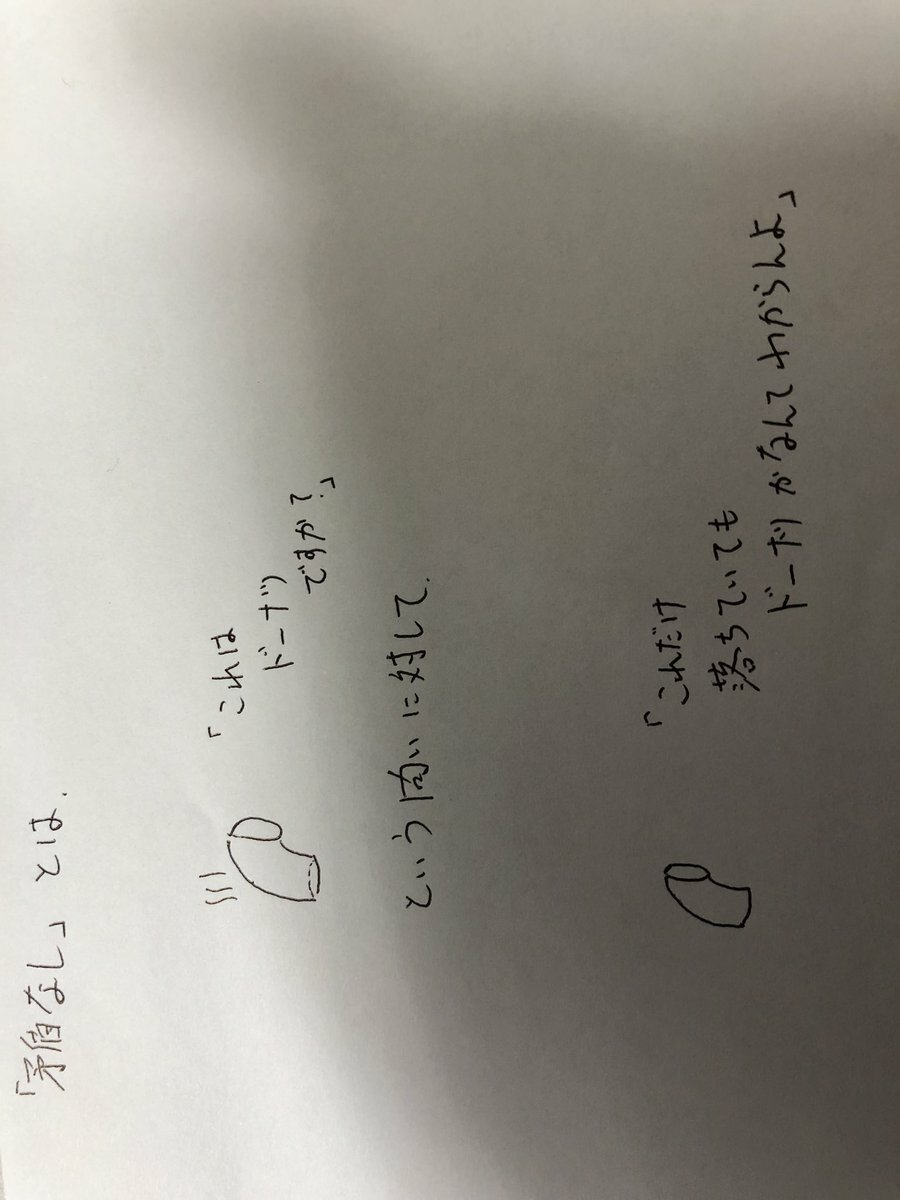 「矛盾なし」とは.
「これは
ドーナツ
ですか?」
という問いに対して.
「これだけ
落ちていても
ドーナツかなんてわからんよ」